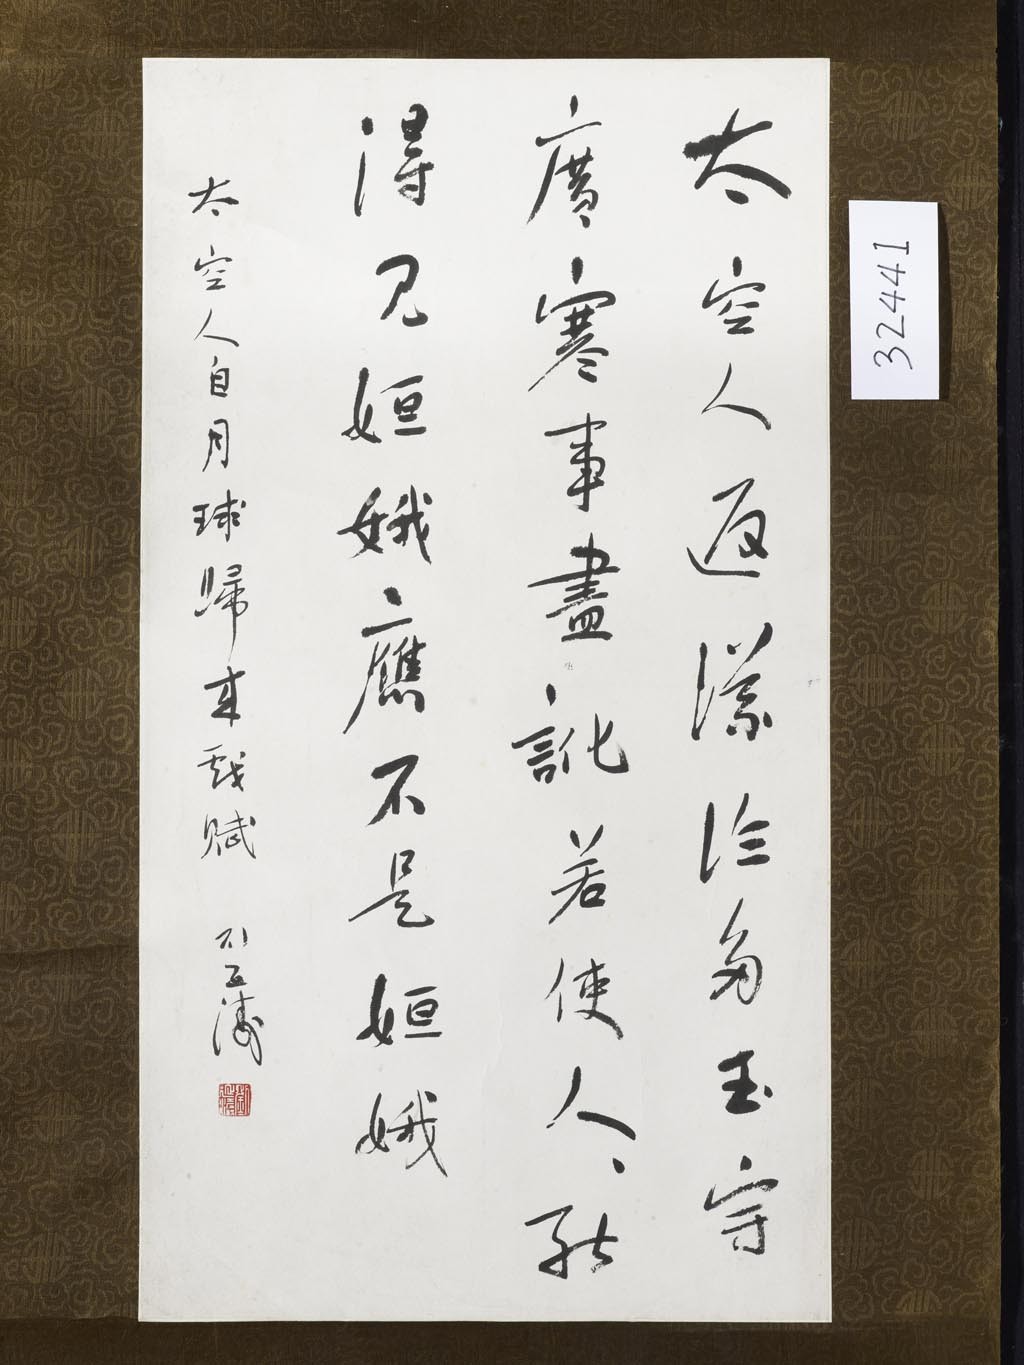 太空人返議論多玉宇
廣寒事盡訛若使人、能
得見姮娥應不是姮娥
太空人自月球歸來戲賦 劉延濤
劉延濤
32441